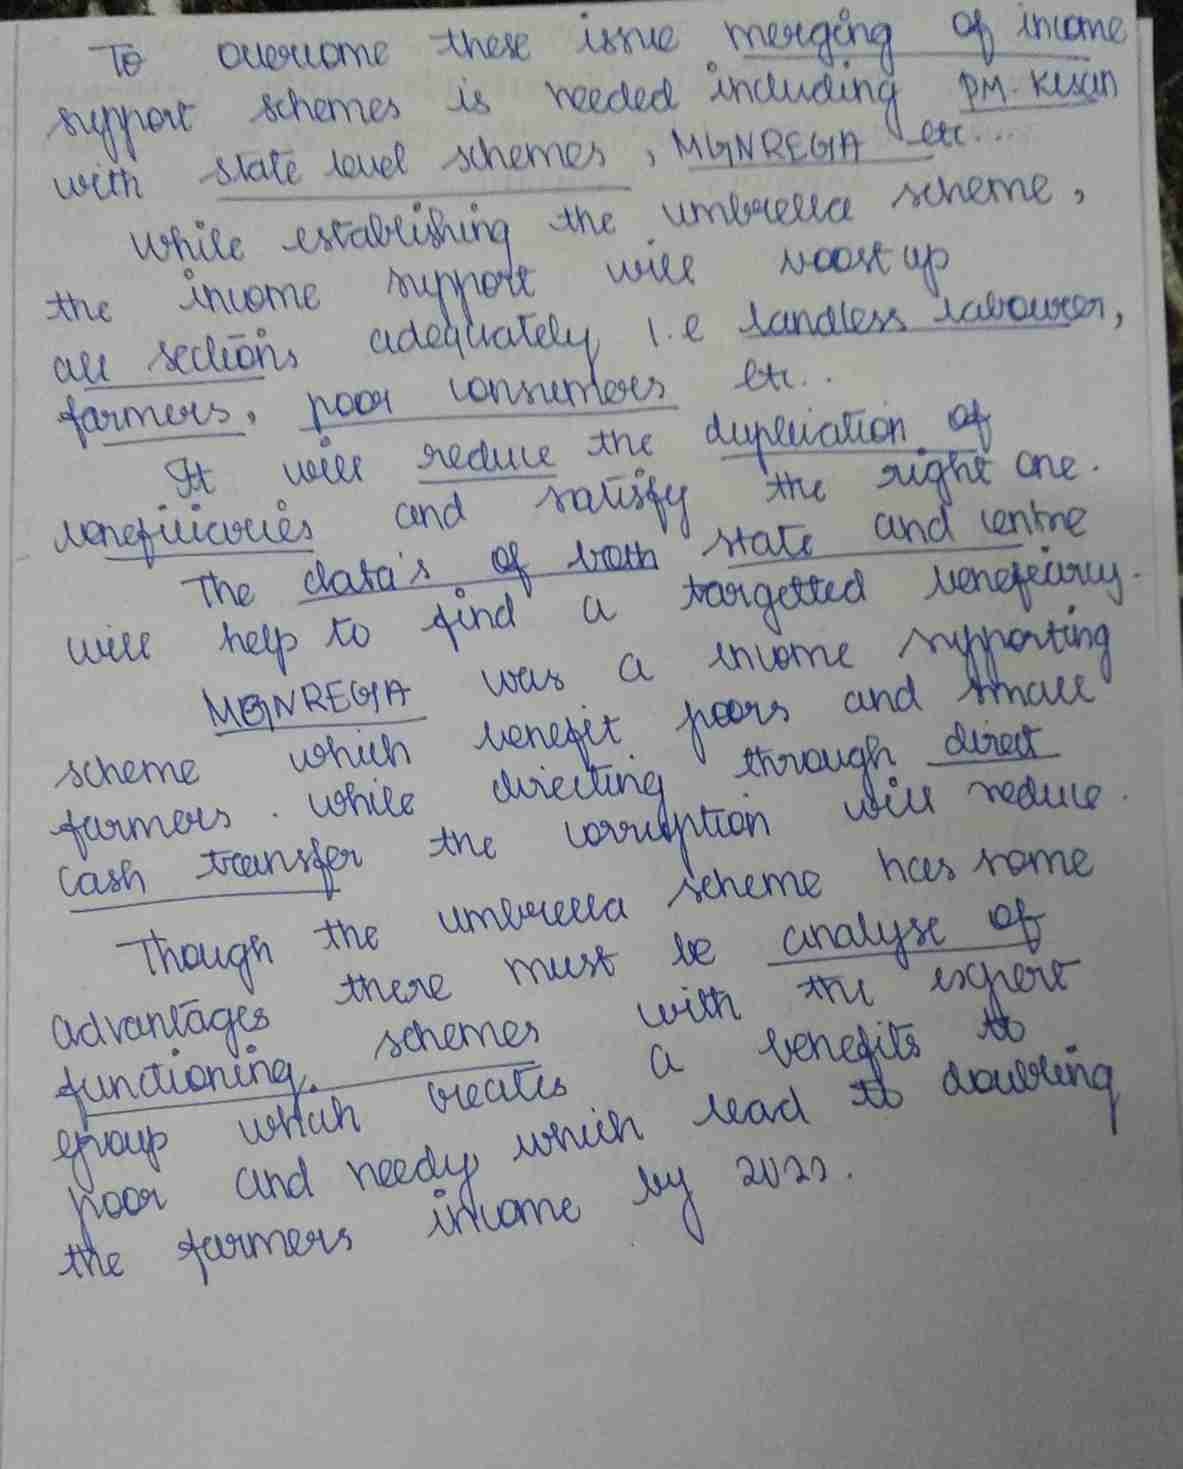 To overcome these issue merging of income
support schemes is needed including PM-Kisan
with state level schemes, MGNREGA etc...
While establishing the umbrella scheme,
the income support will boost up
all sections adequately i.e landless labourer,
farmers, poor consumers etc..
It will reduce the duplication of
beneficiaries and satisfy the right one.
The data's of both state and centre
will help to find a targetted benefeciary.
MGNREGA was a income supporting
scheme which benefit poors and small
farmers. while directing through direct
cash transfer the corruption will reduce.
Though the umbrella scheme has some
advantages there must be analyse of
functioning schemes with the expert
group which creates a benefits to
poor and needy which lead to doubling
the farmers income by 2022.